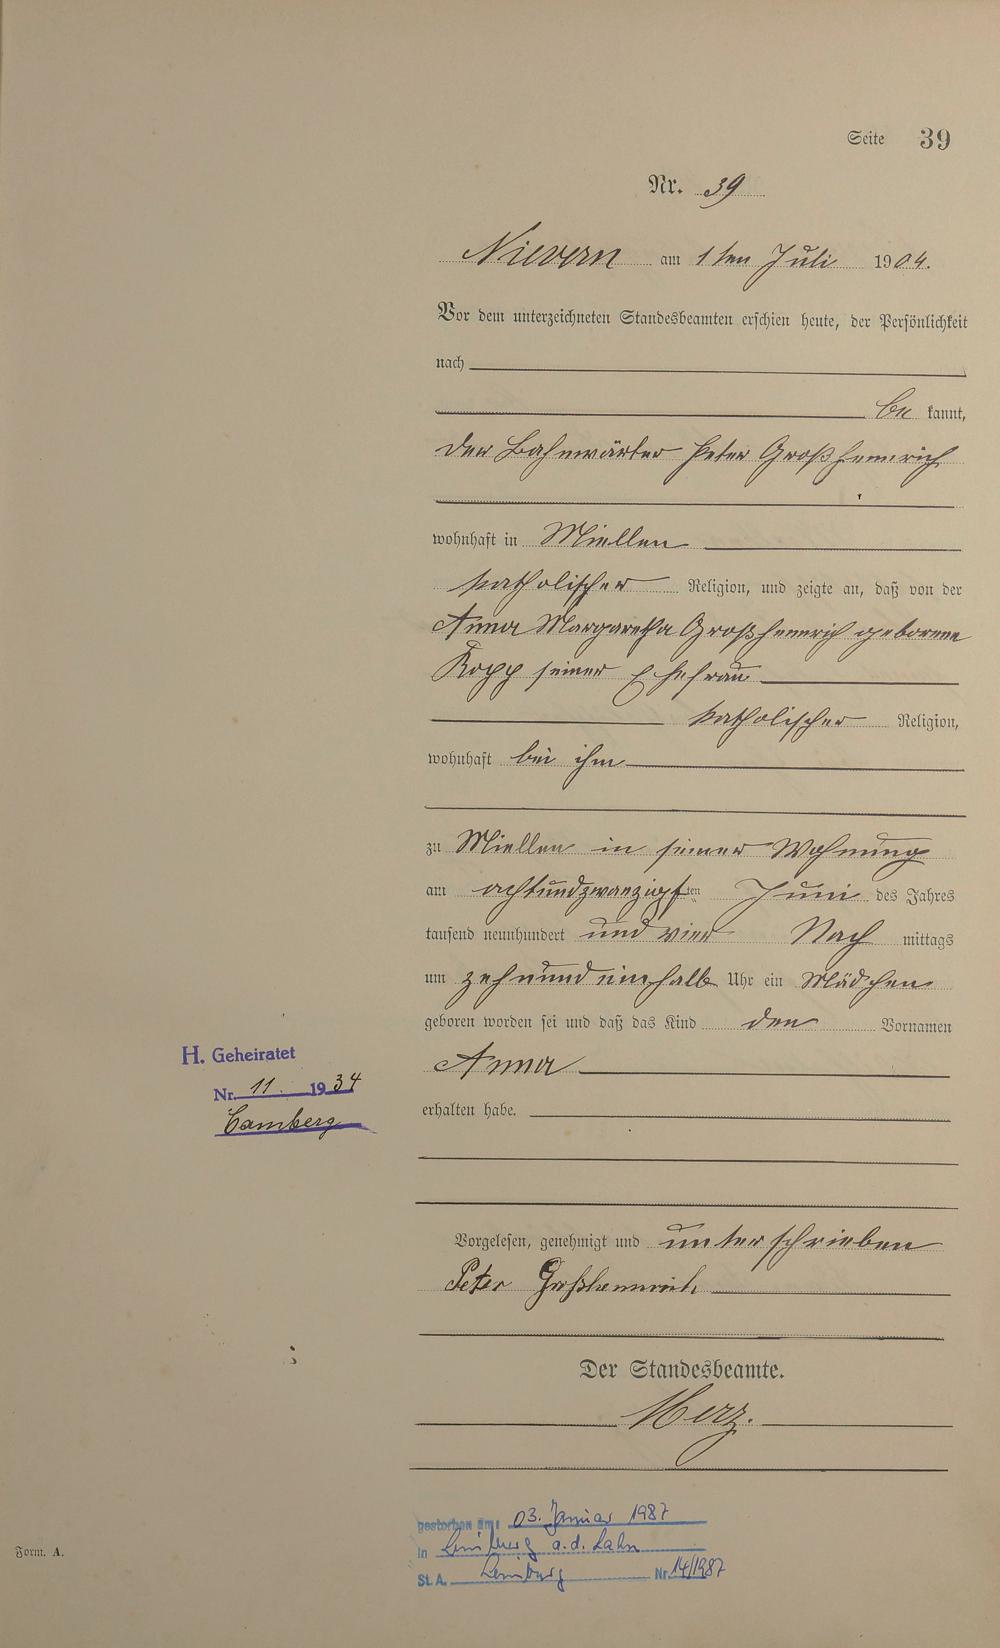 Seite 39
Nr. 39
Nievern am 1ten Juli 1904.
Vor dem unterzeichneten Standesbeamten erschien heute, der Persönlichkeit
nach
be kannt,
der Bahnwärter Peter Großhennrich
wohnhaft in Miellen
katholischer Religion, und zeigte an, daß von der
Anna Margaretha Großhennrich geborenen
Kopp seiner Ehefrau
katholischer Religion,
wohnhaft bei ihm
zu Miellen in seiner Wohnung
am achtundzwanzigsten Juni des Jahres
tausend neunhundert und vier Nach mittags
um zehnundeinhalb Uhr ein Mädchen
geboren worden sei und daß das Kind den Vornamen
Anna
H. Geheiratet
Nr. 11. 1934
Camberg
erhalten habe.
Vorgelesen, genehmigt und unterschrieben
Peter Großhennrich
Der Standesbeamte.
Merz.
gestorben am: 03. Januar 1987
in Limburg a.d. Lahn
St. A. Limburg Nr. 14/1987
Form. A.